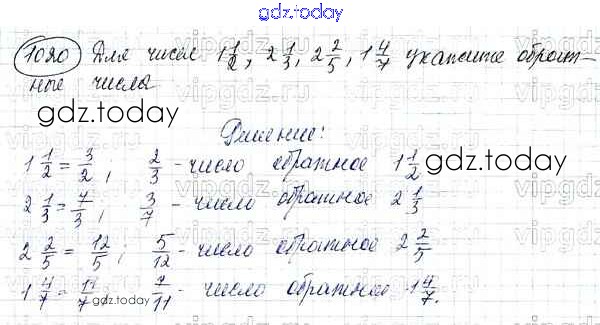 gdz.today
1020 Для чисел 1 1/2, 2 1/3, 2 2/5, 1 4/7 укажите обрат-
ные числа
gdz.today
Решение:
1 1/2 = 3/2; 2/3 - число обратное 1 1/2
gdz.today
2 1/3 = 7/3; 3/7 - число обратное 2 1/3
2 2/5 = 12/5; 5/12 - число обратное 2 2/5
1 4/7 = 11/7 7/11 - число обратное 1 4/7.
gdz.today